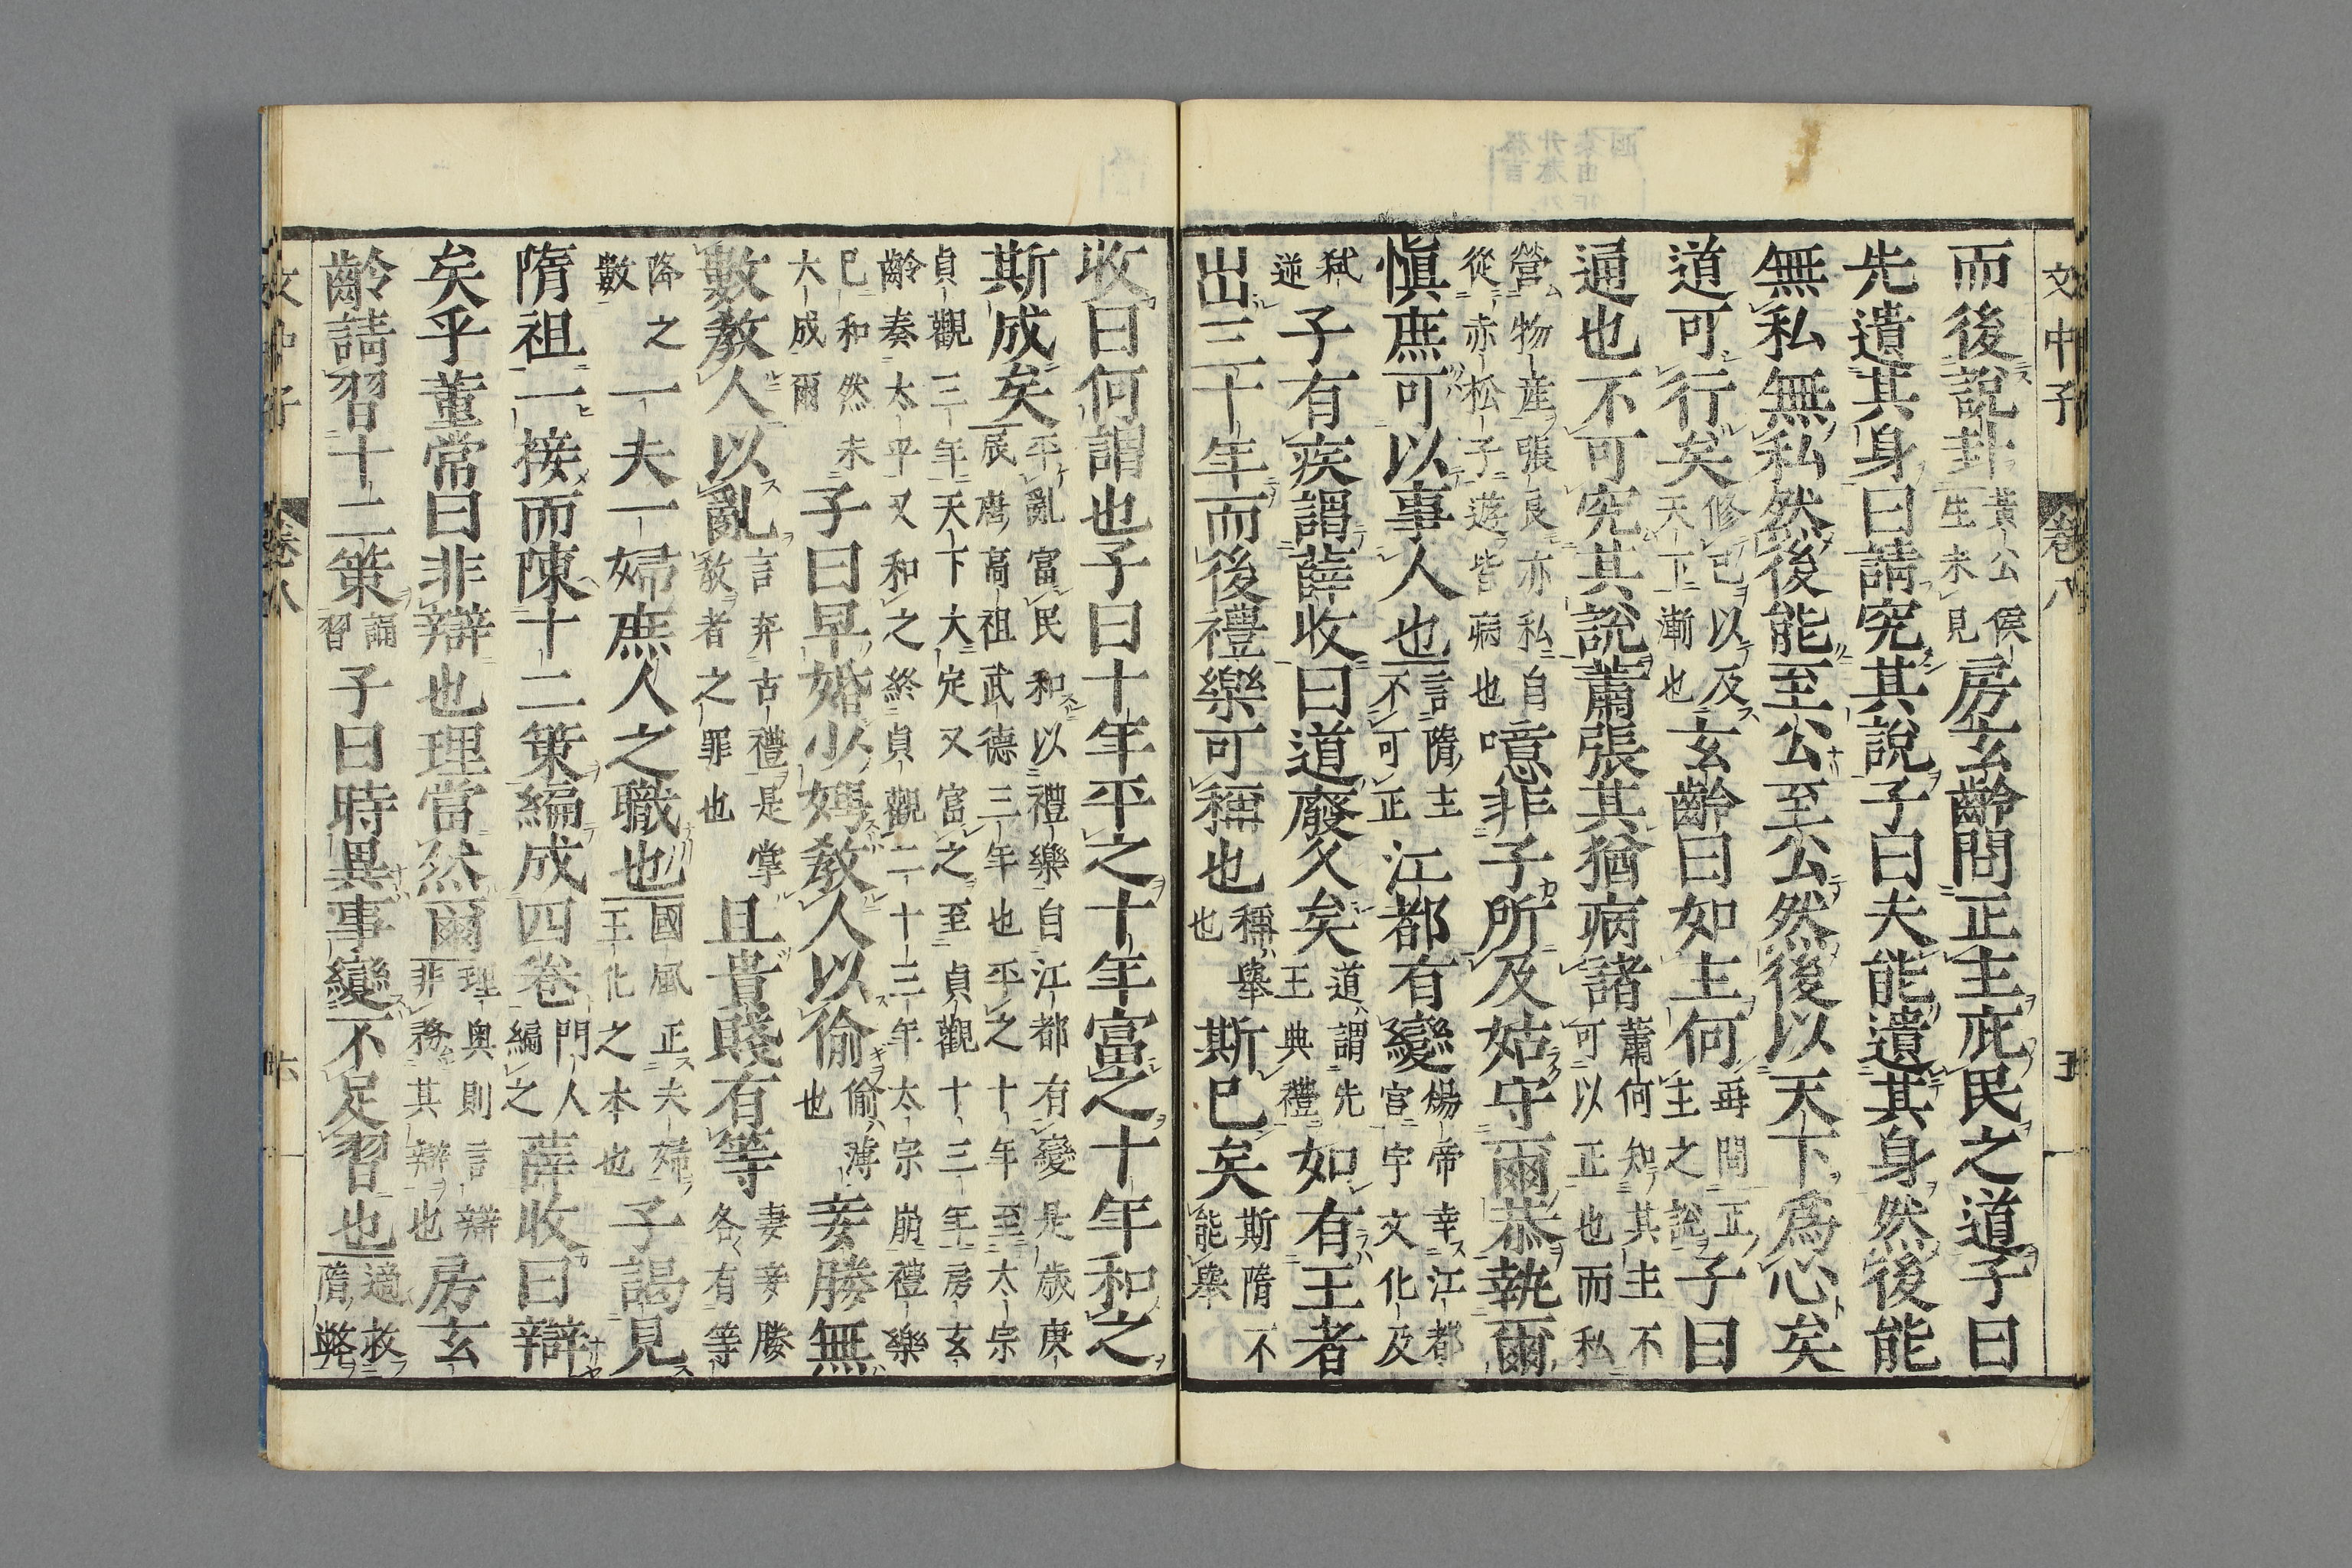 文中子 卷八 五
而後說卦黃公侯生未見房玄齡問正主庇民之道子曰
先遺其身曰請究其說子曰夫能遺其身然後能
無私無私然後能至公至公然後以天下爲心矣
道可行矣修已以及天下漸也玄齡曰如主何再問正主之說子曰
通也不可究其說蕭張其猶病諸蕭何知其主不可以正也而私
營物産張良亦私自從赤松子遊皆病也噫非子所及姑守爾恭執爾
愼庶可以事人也言隋主不可正江都有變煬帝幸江都宮宇文化及
弑逆子有疾謂薛收曰道廢久矣道謂先王典禮如有王者
出三十年而後禮樂可稱也稱舉也斯已矣斯隋不能舉
收曰何謂也子曰十年平之十年富之十年和之
斯成矣平亂富民和以禮樂自江都有變是歲庚辰唐高祖武德三年也平之十年至太宗
貞觀三年天下大定又富之至貞觀十三年房玄齡奏太平又和之終貞觀二十三年太宗崩禮樂
已和然未大成爾子曰早婚少娉敎人以偷偷薄也妾媵無
數敎人以亂言弃古禮是掌敎者之罪也且貴賤有等妻妾媵各有等
降之數一夫一婦庶人之職也國風正夫婦王化之本也子謁見
隋祖一接而陳十二策編成四卷門人編之薛收曰辯
矣乎董常曰非辯也理當然爾理奧則言辯非務其辯也房玄
齡請習十二策誦習子曰時異事變不足習也適救隋弊
文中子 卷八 六